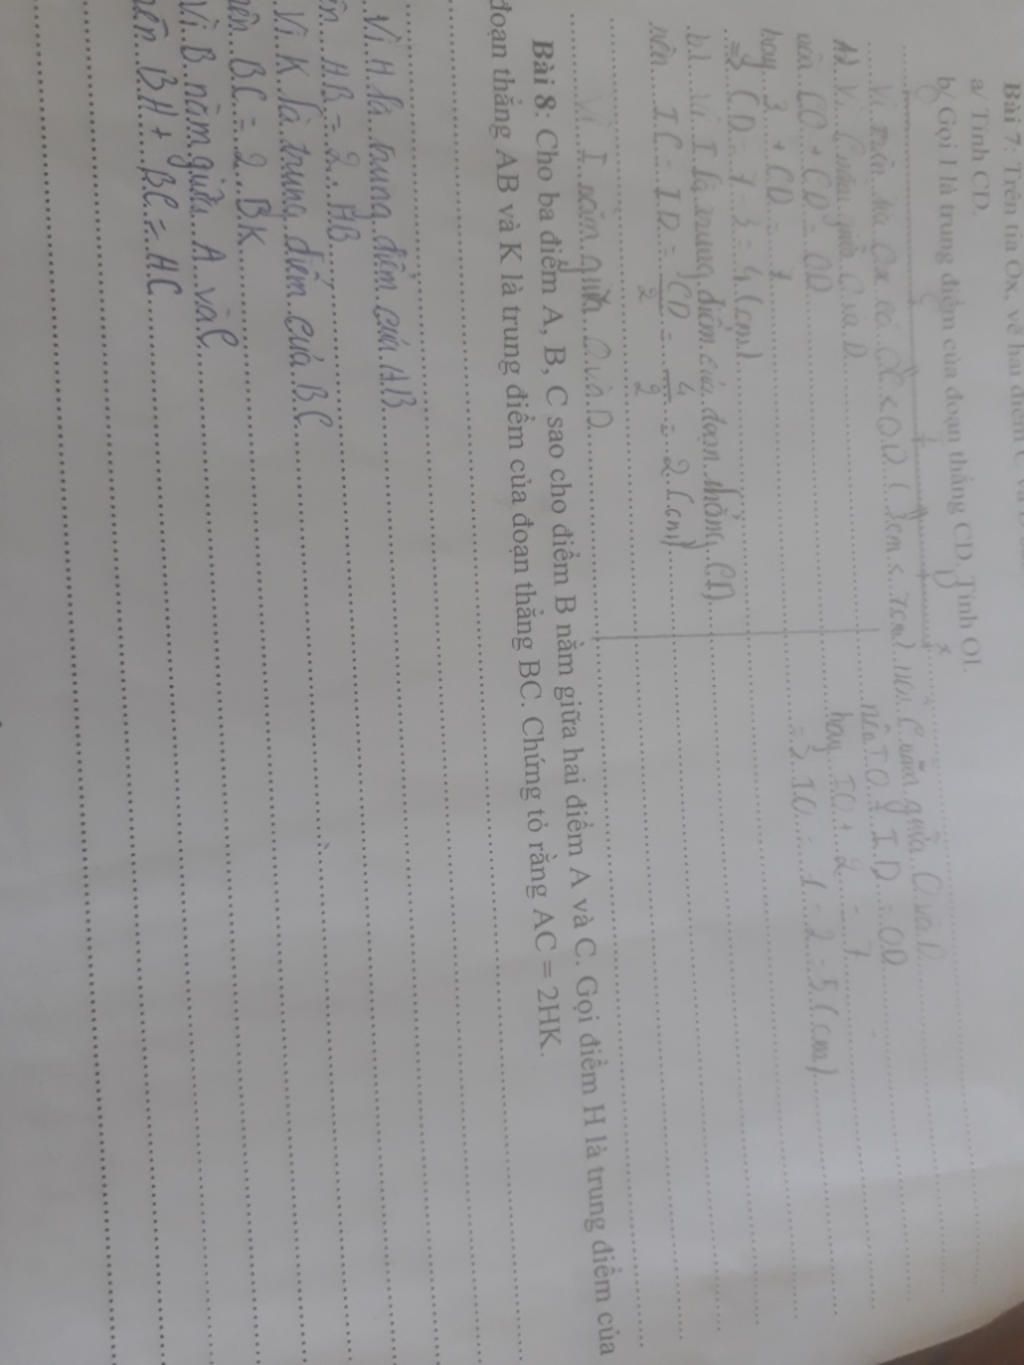 Bài 7: Trên tia Ox, vẽ hai điểm C và D
a/ Tính CD.
b/ Gọi I là trung điểm của đoạn thẳng CD. Tính OI.
I D x
Vì trên tia Ox có OC < OD (3cm < 7cm) nên C nằm giữa O và D
a) Vì C nằm giữa O và D
nên CO + CD = OD
hay 3 + CD = 7
=> CD = 7 - 3 = 4 (cm)
b) Vì I là trung điểm của đoạn thẳng CD
nên IC = ID = CD/2 = 4/2 = 2 (cm)
Vì I nằm giữa O và D
nên IO + ID = OD
hay IO + 2 = 7
=> IO = 7 - 2 = 5 (cm)
Bài 8: Cho ba điểm A, B, C sao cho điểm B nằm giữa hai điểm A và C. Gọi điểm H là trung điểm của
đoạn thẳng AB và K là trung điểm của đoạn thẳng BC. Chứng tỏ rằng AC = 2HK.
Vì H là trung điểm của AB
nên AB = 2 HB
Vì K là trung điểm của BC
nên BC = 2 BK
Vì B nằm giữa A và C
nên BH + BC = AC